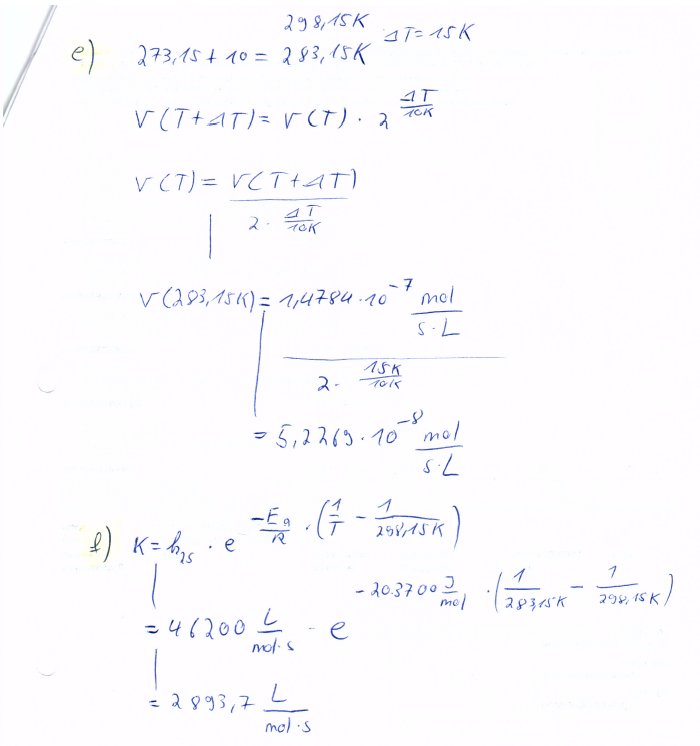 298,15K
e) 273,15 + 10 = 283,15K ΔT = 15K
V(T+ΔT) = V(T) · 2^(ΔT/10K)
V(T) = V(T+ΔT) / 2 · ΔT/10K
V(283,15K) = 1,4784 · 10^-7 mol/s·L
2 · 15K/10K
= 5,2269 · 10^-8 mol/s·L
f) K = k25 · e^(-Ea/R · (1/T - 1/298,15K))
= 46200 L/mol·s · e^(-203700 J/mol · (1/283,15K - 1/298,15K))
= 2893,7 L/mol·s